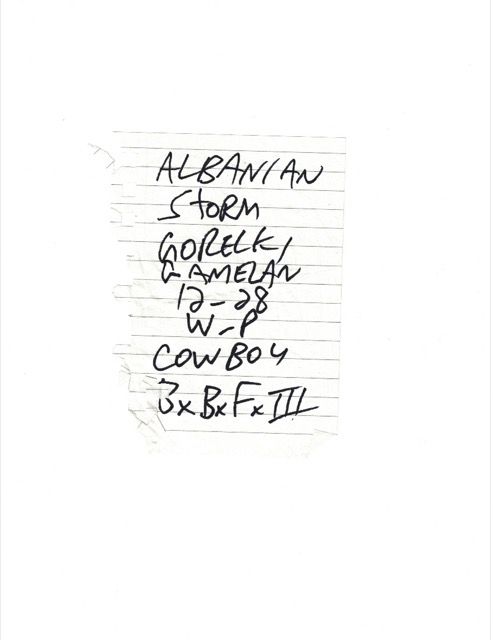 ALBANIAN
STORM
GORELKI
GAMELAN
12-28
W-P
COWBOY
3xBxFxIII